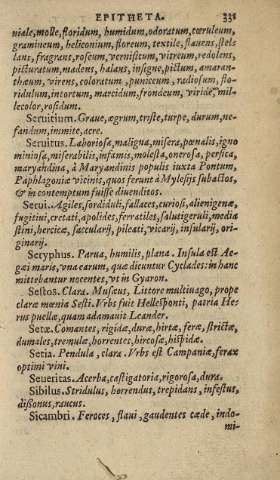 EPITHETA. 331
niale, molle, floridum, humidum, odoratum, cœruleum,
gramineum, heliconium, floreum, textile, flauens, stel-
lans, fragrans, roseum, vernificum, vitreum, redolens,
picturatum, madens, halans, insigne, pictum, amaran-
thæum, virens, coloratum, puniceum, radiosum, flo-
ridulum, intortum, marcidum, frondeum, viride, mil-
lecolor, rosidum.
Seruitium. Graue, ægrum, triste, turpe, durum, ne-
fandum, immite, acre.
Seruitus. Laboriosa, maligna, misera, pœnalis, igno
miniosa, miserabilis, infamis, molesta, onerosa, persica,
maryandina, à Maryandinis populis iuxta Pontum,
Paphlagoniæ vicinis, quos ferunt à Mylesijs subactos,
& in contemptum fuisse diuenditos.
Serui. Agiles, sordiduli, fallaces, curiosi, alienigenæ,
fugitiui, cretati, apolides, ferratiles, salutigeruli, media
stini, hercicæ, saccularij, pileati, vicarij, insularij, ori-
ginarij.
Seryphus. Parua, humilis, plana. Insula est Ae-
gai maris, vna earum, quæ dicuntur Cyclades: in hanc
mittebantur nocentes, vt in Gyaron.
Sestos. Clara. Musæus, Littore multiuago, prope
claræ mœnia Sesti. Vrbs fuit Hellesponti, patria He-
rus puellæ, quam adamauit Leander.
Setæ. Comantes, rigidæ, duræ, hirtæ, feræ, strictæ,
dumales, tremulæ, horrentes, hircosæ, hispidæ.
Setia. Pendula, clara. Vrbs est Campaniæ, ferax
optimi vini.
Seueritas. Acerba, castigatoria, rigorosa, dura.
Sibilus. Stridulus, horrendus, trepidans, infestus,
dissonus, raucus.
Sicambri. Feroces, flaui, gaudentes cæde, indo-
mi-